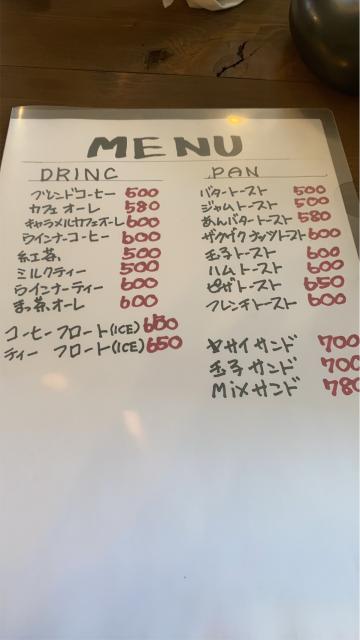 MENU
DRINC
ブレンドコーヒー 500
カフェオーレ 580
キャラメルカフェオーレ 600
ウインナーコーヒー 600
紅茶 500
ミルクティー 500
ウインナーティー 600
まっ茶オーレ 600
コーヒーフロート(ICE) 650
ティーフロート(ICE) 650
PAN
バタートースト 500
ジャムトースト 500
あんバタートースト 580
ザクザクナッツトースト 600
玉子トースト 600
ハムトースト 600
ピザトースト 650
フレンチトースト 600
ヤサイサンド 700
玉子サンド 700
Mixサンド 780